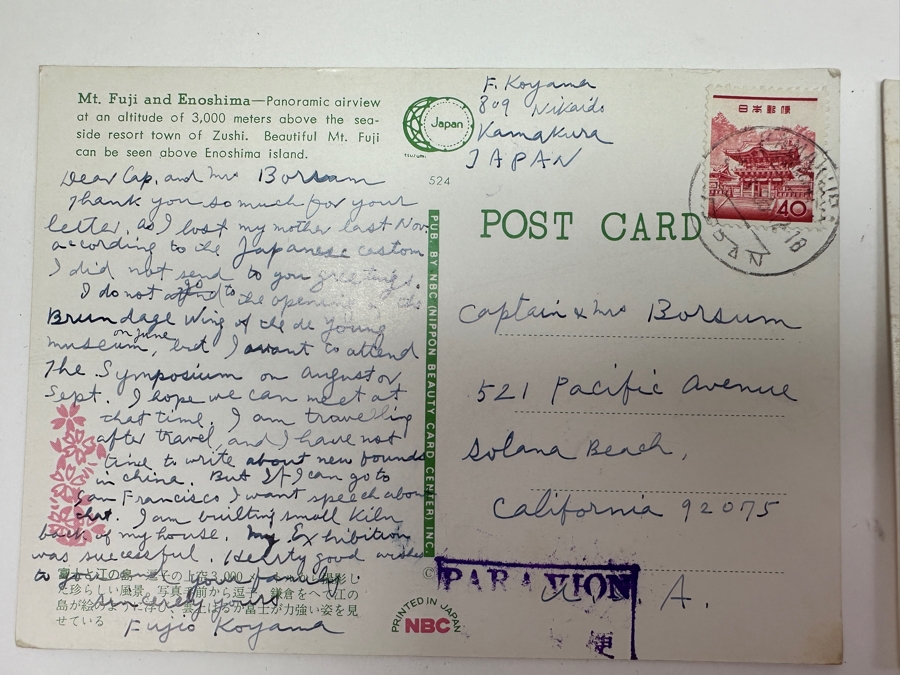 Mt. Fuji and Enoshima—Panoramic airview
at an altitude of 3,000 meters above the sea-
side resort town of Zushi. Beautiful Mt. Fuji
can be seen above Enoshima island.
Japan
tsurumi
524
F. Koyama
809 Nikaido
Kamakura
JAPAN
日本郵便
40
POST CARD
Dear Cap. and Mrs Borsum
Thank you so much for your
letter, as I lost my mother last Nov
according to the Japanese custom
I did not send to you greetings.
I do not go to the opening of the
Brundage Wing of the de Young
museum, on June but I want to attend
The Symposium on August or
Sept. I hope we can meet at
that time. I am travelling
after travel, and I have not
time to write about new founds
in China. But If I can go to
San Francisco I want speech about
that. I am building small Kiln
back of my house. My Exhibition
was successful. good wishes
to you and your family
Sincerely yours
Fujio Koyama
Captain & Mrs Borsum
521 Pacific Avenue
Solana Beach,
California 92075
U.S.A.
PAR AVION
便
PUB. BY NBC (NIPPON BEAUTY CARD CENTER) INC.
©
PRINTED IN JAPAN
NBC
富士と江の島 その上空3,000
た珍らしい風景。写真手前から逗子、鎌倉をへて江の
島が絵のように浮び、富士が力強い姿を見
せている